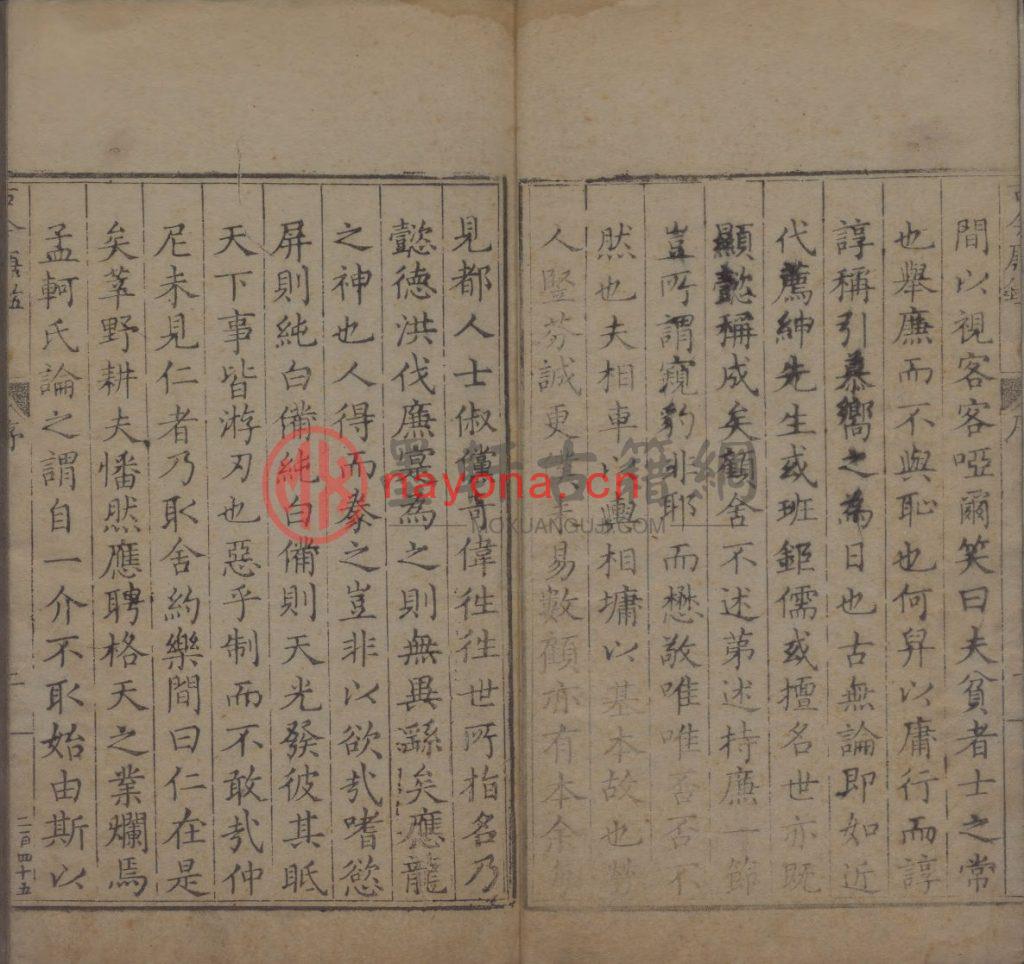 間以視客客啞爾笑曰夫貧者士之常
也舉廉而不與恥也何舁以庸行而諄
諄稱引慕嚮之為日也古無論即如近
代薦紳先生或班鉅儒或擅名世亦既
顯懿稱成矣顧舍不述第述持廉一節
豈所謂窺豹非耶而懋敬唯唯否否不
然也夫相車以輿相墉以基本故也勢
人豎芬誠更易數顧亦有本余
見都人士俶儻奇偉往往世所指名乃
懿德洪伐廉棠為之則無異繇矣應龍
之神也人得而豢之豈非以欲哉嗜慾
屏則純白備純白備則天光發彼其眂
天下事皆游刃也惡乎制而不敢哉仲
尼未見仁者乃取舍約樂間曰仁在是
矣莘野耕夫幡然應聘格天之業爛焉
孟軻氏論之謂自一介不取始由斯以
序
二
二百四十五
墨軒古籍網
nayona.cn
MOXUANGUJI.COM